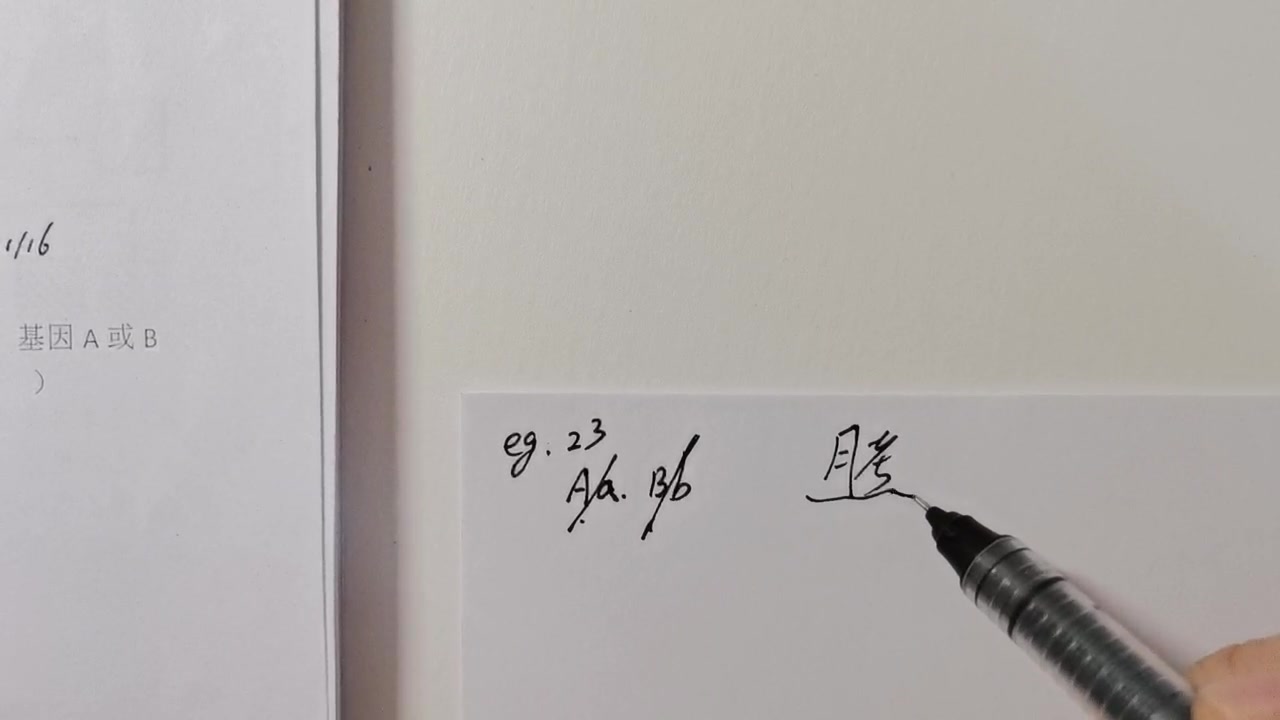 1/16
基因 A 或 B
)
eg. 23
A/a. B/b
月考